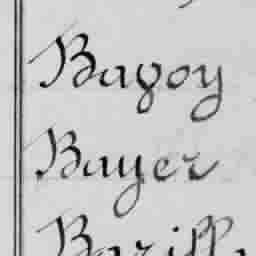 Bagoy
Bayer